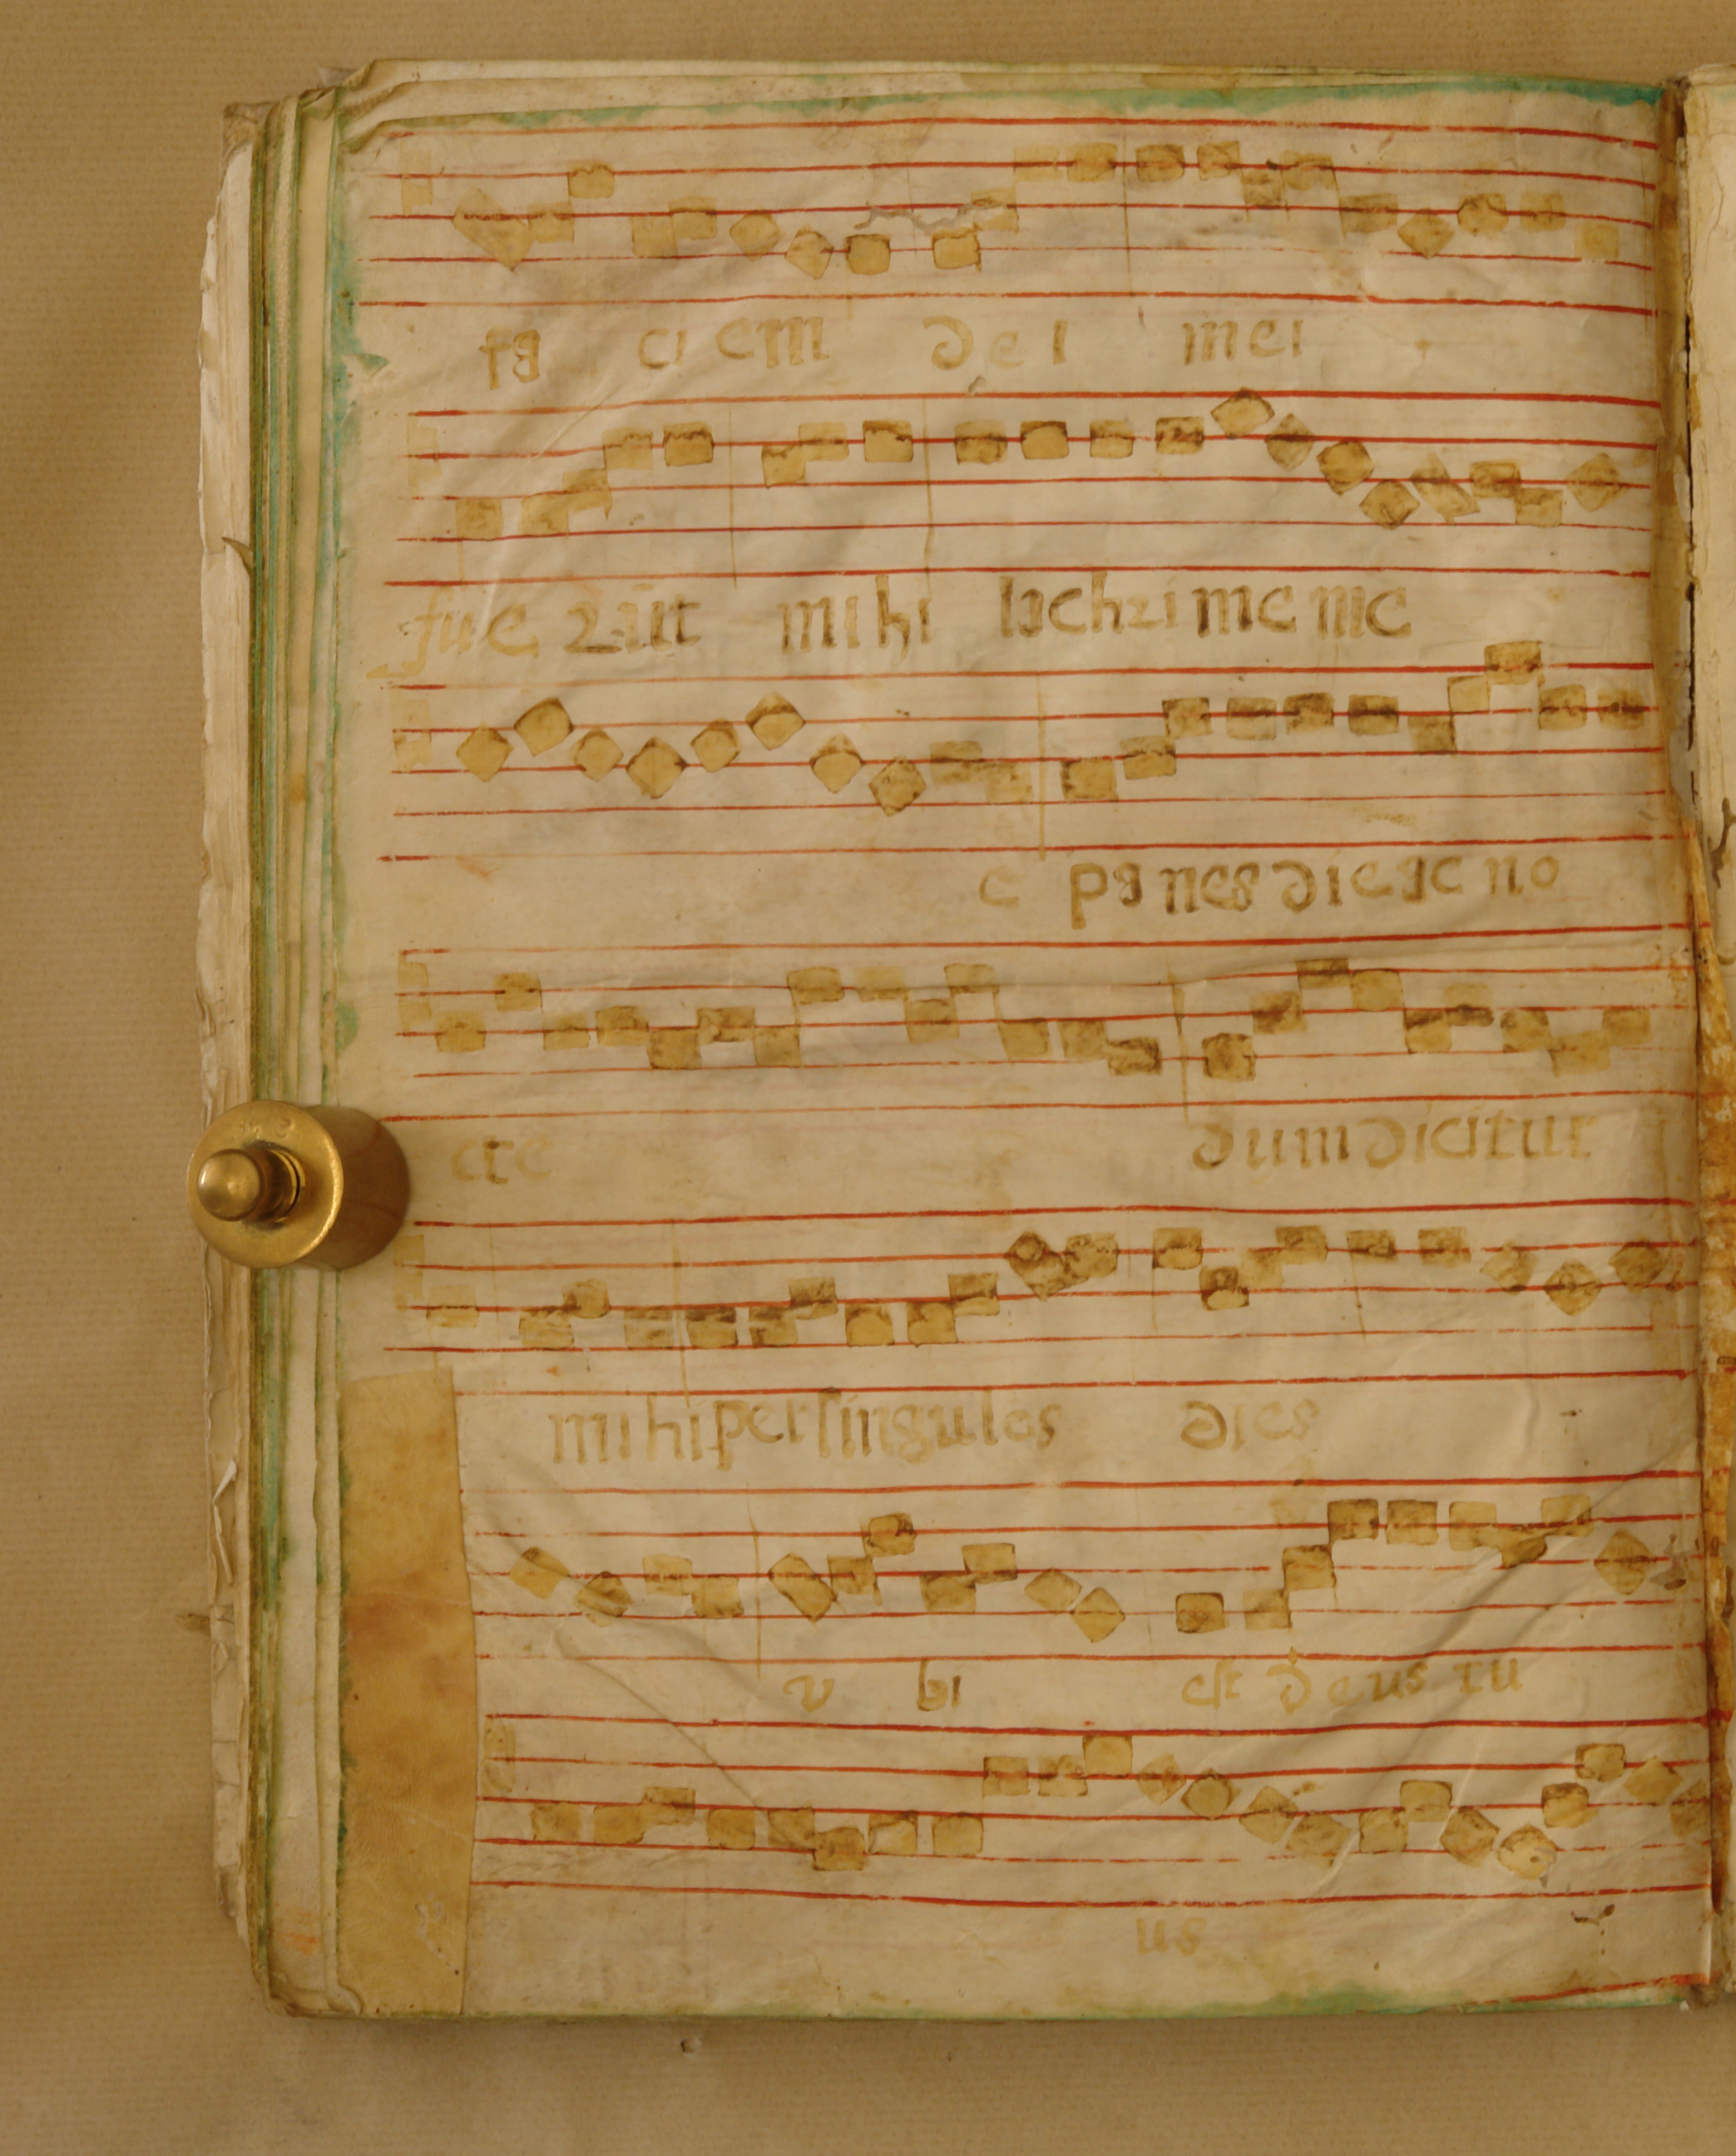 fa ci em de i mei
fue rūt mihi lachrime me
e panes die ac no
cte dum dicitur
mihi per singulos dies
v bi est deus tu
us